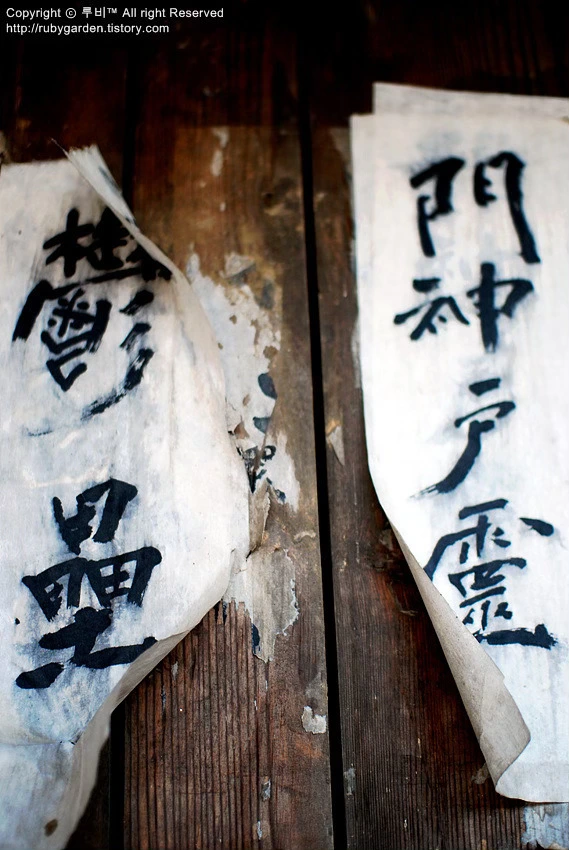 Copyright © 루비™ All right Reserved
http://rubygarden.tistory.com
門神戶靈
鬱壘